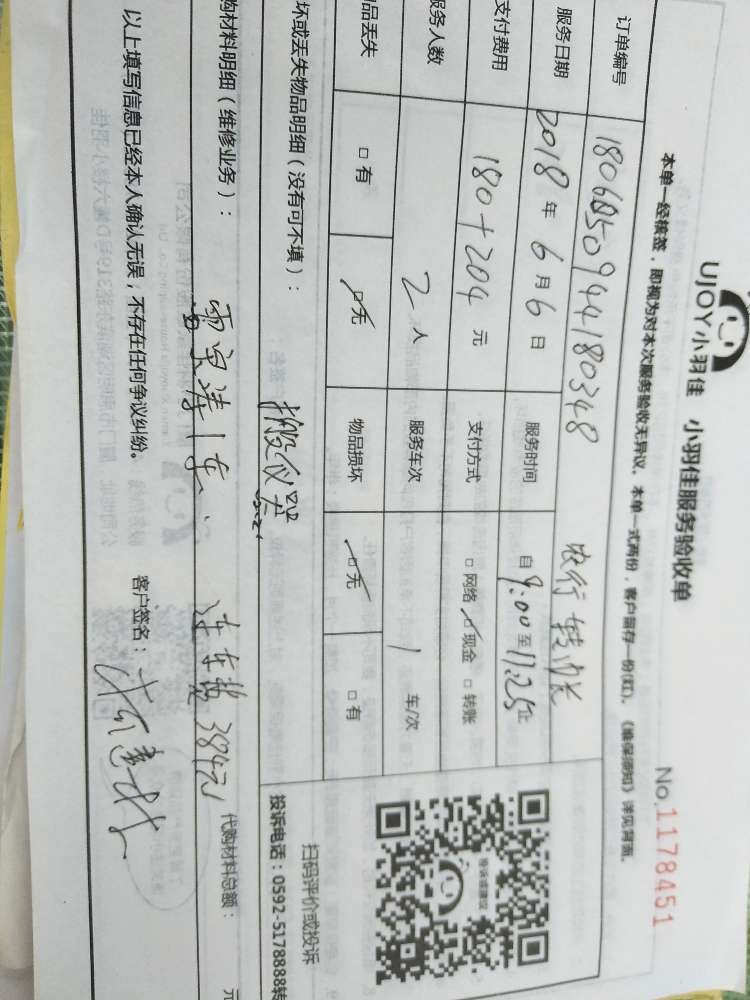 UJOY小羽佳 小羽佳服务验收单
No.1178451
本单一经核签，即视为对本次服务验收无异议。本单一式两份，客户留存一份(红)。《维保须知》详见背面。
订单编号 1806050944180348 农行 转账
服务日期 2018年6月6日 服务时间 自9:00至11:25止
支付费用 180+204元 支付方式 □网络 □现金 □转账
服务人数 2人 服务车次 1 车/次
物品丢失 □有 □无 物品损坏 □无 □有
坏或丢失物品明细（没有可不填）：
扫码评价或投诉
投诉电话：0592-5178888转
购材料明细（维修业务）： 384元 代购材料总额： 元
以上填写信息已经本人确认无误；不存在任何争议纠纷。 客户签名：